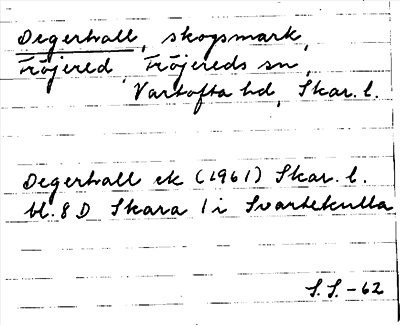 Degerhall, skogsmark,
Fröjered, Fröjereds sn,
Vartofta hd, Skar. l.
Degerhall ek (1961) Skar. l.
bl. 8 D Skara 1 i Svartekulla
S.S. -62